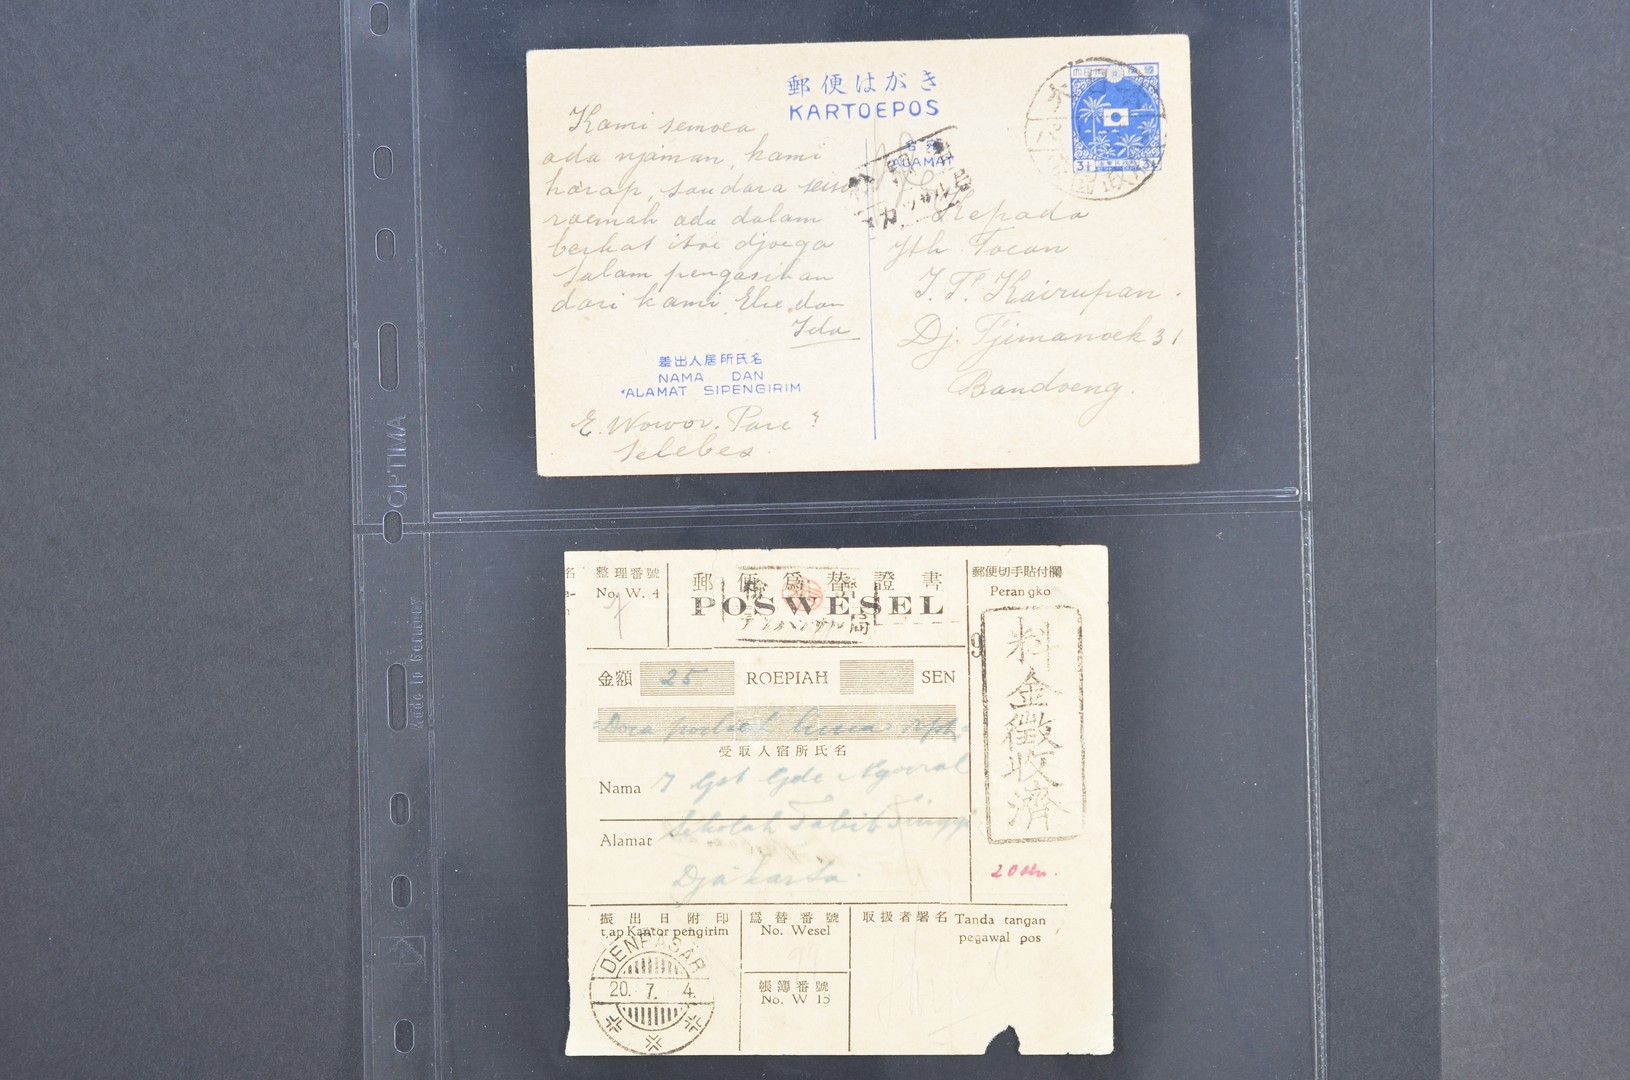 郵便はがき
KARTOEPOS
ALAMAT
Kami semoea
ada njaman, kami
harap, saudara seisi
roemah ada dalam
berkat itoe djoega
Salam pengasihan
dari kami, Elie dan
Ida
差出人居所氏名
NAMA DAN
ALAMAT SIPENGIRIM
E. Wowor. Pare
Selebes.
Kepada
Jth. Toean
Kairupan.
Dj. Tjimanoek 31
Bandoeng.
3½
3½
OPTIMA
Made in Germany
整理番號
No. W. 4
郵便爲替證書
POSWESEL
デンパサル局
郵便切手貼付欄
Perangko
料金徵收濟
金額 25 ROEPIAH SEN
Doea poeloeh lima
受取人宿所氏名
Nama I Gst Gde Ngoerah
Alamat Sekolah Tabib Tinggi
Djakarta.
20 sen.
振出日附印
tjap Kantor pengirim
爲替番號
No. Wesel
99
帳簿番號
No. W 15
取扱者署名 Tanda tangan
pegawai pos
DENPASAR
20. 7. 4.